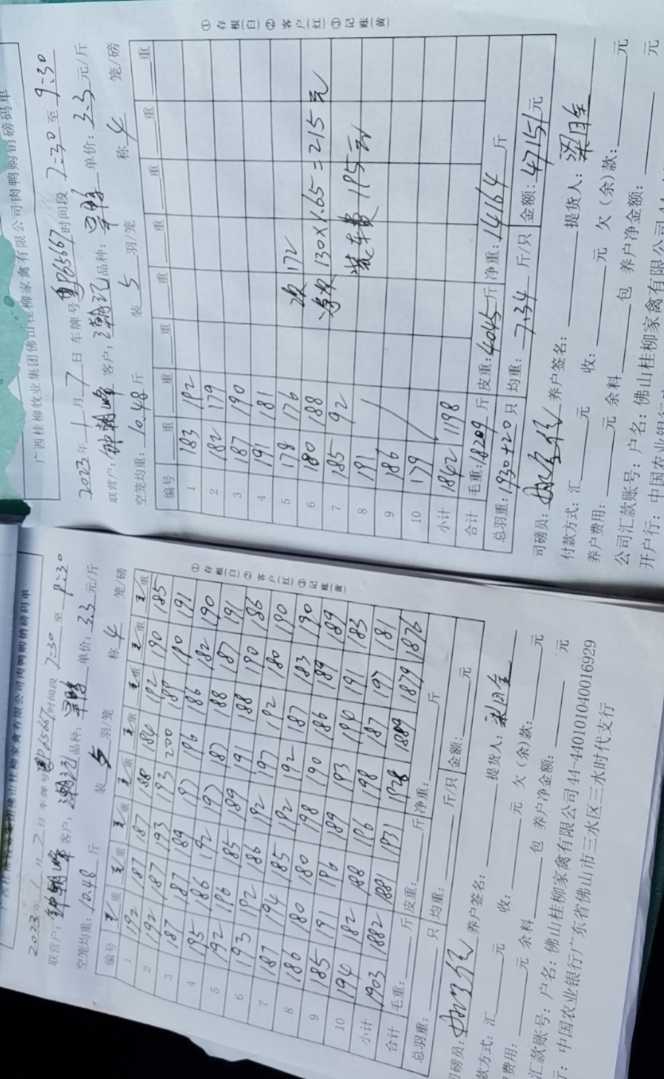 广西桂柳牧业集团佛山桂柳家禽有限公司肉鸭购销磅码单
2023年1月7日 车牌号 P65667 时间段 7:30 至 9:30
联营户: 客户: 品种: 单价: 3.3 元/斤
空笼均重: 10.48 斤 装 5 羽/笼 称 4 笼/磅
编号 重 重 重 重 重 重 重
1 183 192
2 182 179
3 187 190
4 191 181
5 178 176
6 180 188
7 185 92
8 191
9 186
10 179
小计 1842 1198
次 172
130×1.65=215元
装车费 195元
合计 毛重: 18209 斤 皮重: 4045 斤 净重: 14164 斤
总羽重: 1930+20 只 均重: 7.34 斤/只 金额: 47151元
司磅员: 养户签名: 提货人:
付款方式: 汇 元 收: 元 欠(余)款: 元
养户费用: 元 余料 包 养户净金额: 元
公司汇款账号: 户名: 佛山桂柳家禽有限公司
开户行: 中国农业银行
①存根白②客户红③记账黄
佛山桂柳家禽有限公司肉鸭购销磅码单
2023 日 车牌号 P65667 时间段 7:30 至 9:30
联营户: 客户: 品种: 单价: 3.3 元/斤
空笼均重: 10.48 斤 装 5 羽/笼 称 4 笼/磅
编号 重 重 重 重 重 重 重
1 192 187 187 188 184 192 190 185
2 192 187 193 193 200 188 190 191
3 187 187 189 197 196 186 182 190
4 195 186 192 197 187 188 187 191
5 192 196 185 189 191 188 190 186
6 193 192 186 192 197 192 180 190
7 187 194 185 192 192 187 183 190
8 186 180 180 198 190 186 189 189
9 185 191 196 189 193 190 191 183
10 194 182 188 196 198 187 197 181
小计 1903 1882 1881 1931 1928 1889 1879 1876
合计 毛重: 斤 皮重: 斤 净重: 斤
总羽重: 只 均重: 斤/只 金额: 元
司磅员: 养户签名: 提货人:
款方式: 汇 元 收: 元 欠(余)款: 元
费用: 元 余料 包 养户净金额: 元
汇款账号: 户名: 佛山桂柳家禽有限公司 44-440101040016929
行: 中国农业银行广东省佛山市三水区三水时代支行
①存根白②客户红③记账黄